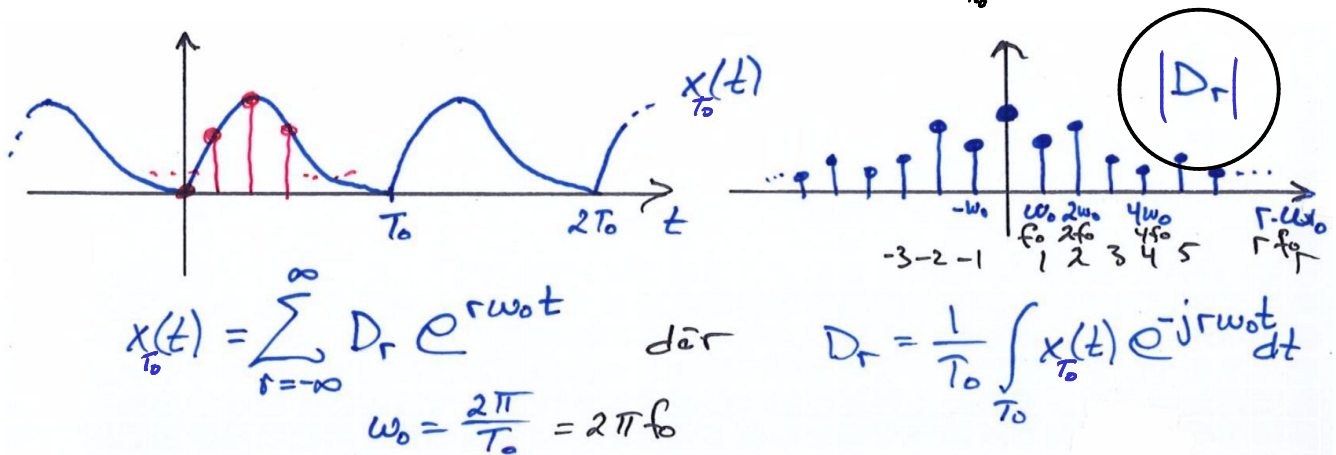 x_{T_0}(t)
T_0 2T_0 t
|D_r|
-ω_0 ω_0 2ω_0 4ω_0 r·ω_0
f_0 2f_0 4f_0 r f_0
-3 -2 -1 1 2 3 4 5 r
x_{T_0}(t) = ∑_{r=-∞}^{∞} D_r e^{rω_0t} där D_r = \frac{1}{T_0} ∫_{T_0} x_{T_0}(t) e^{-jrω_0t} dt
ω_0 = \frac{2π}{T_0} = 2πf_0